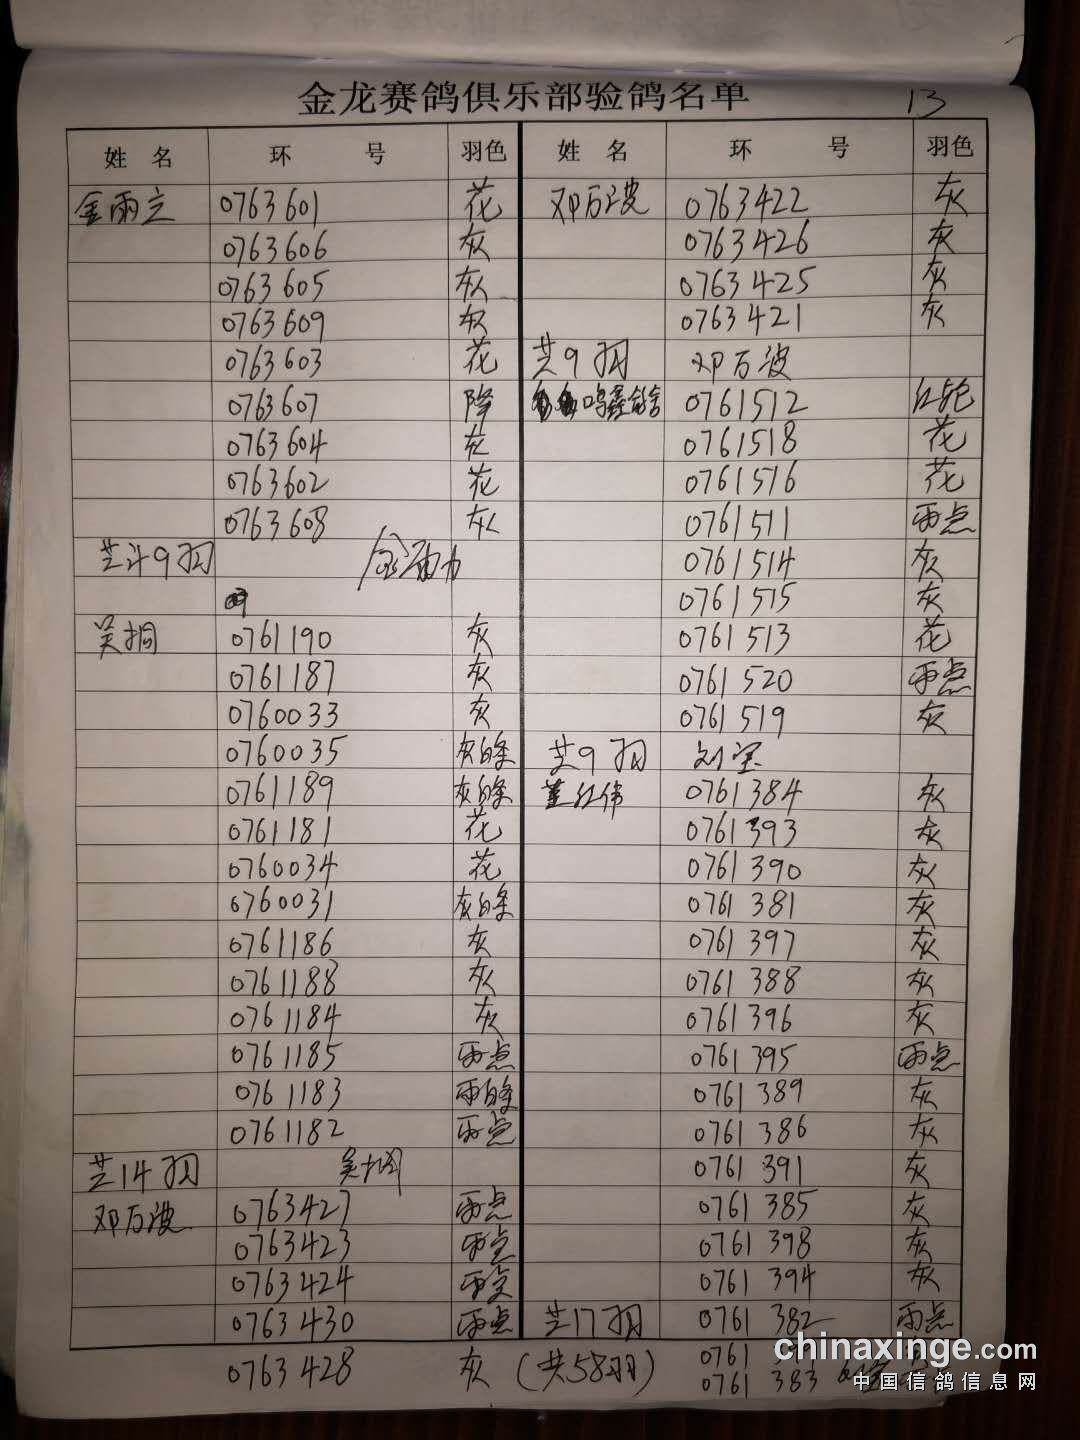 金龙赛鸽俱乐部验鸽名单
13
姓 名 环 号 羽色
金雨立 0763601 花
0763606 灰
0763605 灰
0763609 灰
0763603 花
0763607 降
0763604 灰
0763602 花
0763608 灰
共计9羽
吴桐 0761190 灰
0761187 灰
0760033 灰
0760035 灰白条
0761189 灰白条
0761181 花
0760034 花
0760031 灰白条
0761186 灰
0761188 灰
0761184 灰
0761185 雨点
0761183 雨白条
0761182 雨点
共14羽 吴桐
邓万波 0763427 雨点
0763423 雨点
0763424 雨点
0763430 雨点
0763428 灰
姓 名 环 号 羽色
邓万波 0763422 灰
0763426 灰
0763425 灰
0763421 灰
共9羽 邓万波
鸣鑫鸽舍 0761512 红轮
0761518 花
0761516 花
0761511 雨点
0761514 灰
0761515 灰
0761513 花
0761520 雨点
0761519 灰
共9羽 刘宝
董红伟 0761384 灰
0761393 灰
0761390 灰
0761381 灰
0761397 灰
0761388 灰
0761396 灰
0761395 雨点
0761389 灰
0761386 灰
0761391 灰
0761385 灰
0761398 灰
0761394 灰
共17羽 0761382 雨点
(共58羽) 0761
0761383
chinaxinge.com
中国信鸽信息网